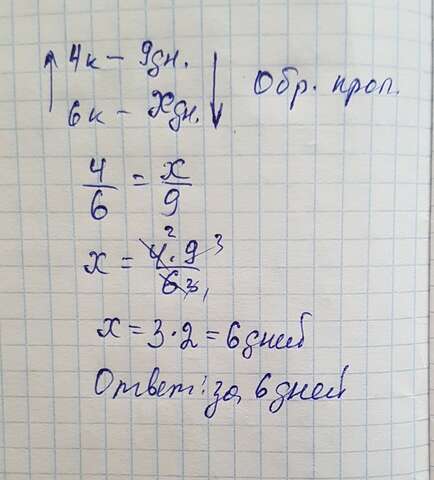 4к – 9дн.
6к – Xдн.
Обр. проп.
4/6 = x/9
x = 4² · 9³ / 6 3 1
x = 3 · 2 = 6 дней
Ответ: за 6 дней